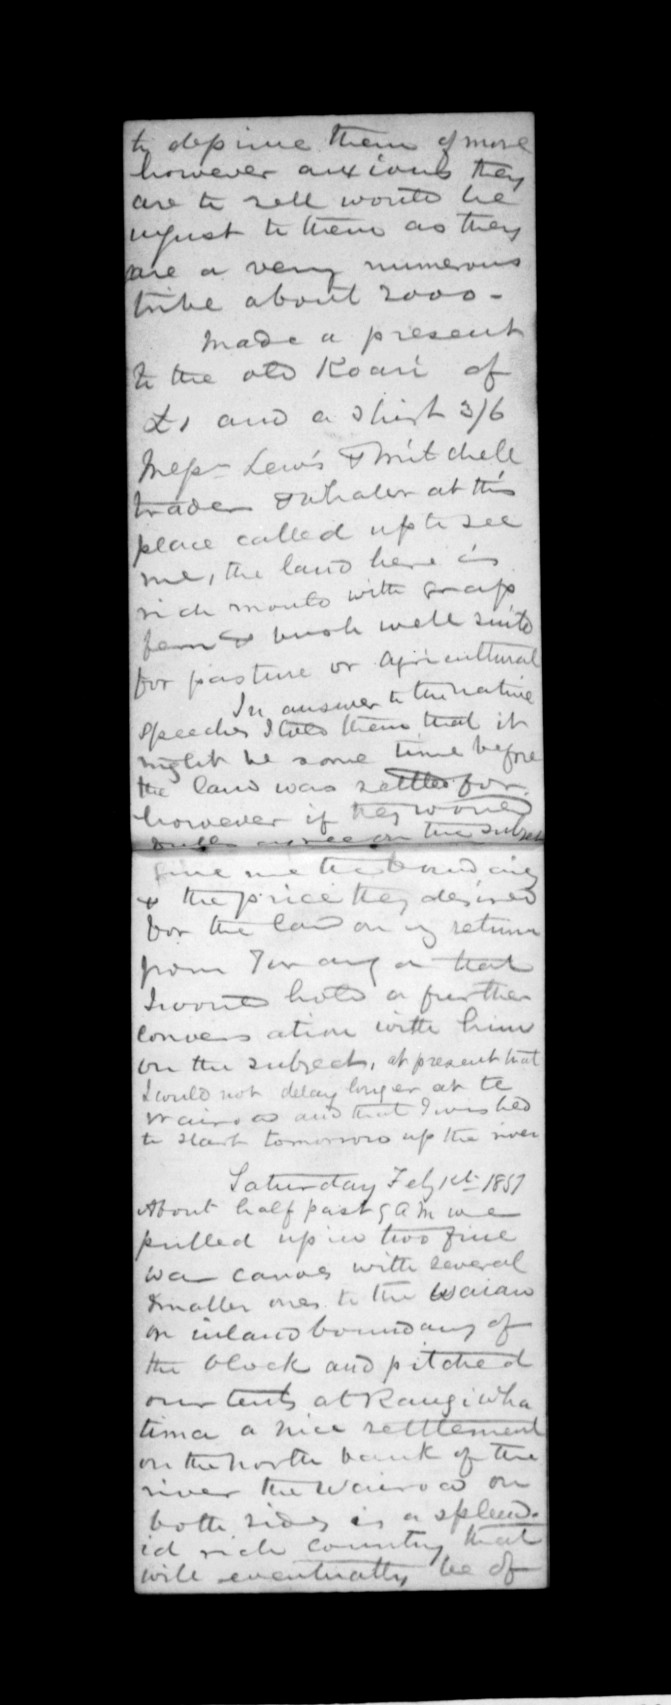 to deprive them of more
however anxious they
are to sell would be
unjust to them as they
are a very numerous
tribe about 2000 -
Made a present
to the old Koari of
£1 and a shirt 3/6
Messrs Lewis & Mitchell
trader & whaler at this
place called up to see
me, the land here is
rich mould with grass
fern & bush well suited
for pasture or agricultural
In answer to the native
speeches I told them that it
might be some time before
the land was settled for
however if they would
agree on the subject
give me the boundary
& the price they desired
for the land on my return
from Turanga that
I would hold a further
conversation with him
on the subject, at present that
I would not delay longer at te
Wairoa and that I wished
to start tomorrow up the river
Saturday Feby 1st 1851
About half past 5 AM we
pulled up in two fine
war canoes with several
smaller ones to the Waiau
or inland boundary of
the block and pitched
our tents at Rangiwha
tima a nice settlement
on the north bank of the
river the Wairoa on
both sides is a splend-
id rich country that
will eventually be of